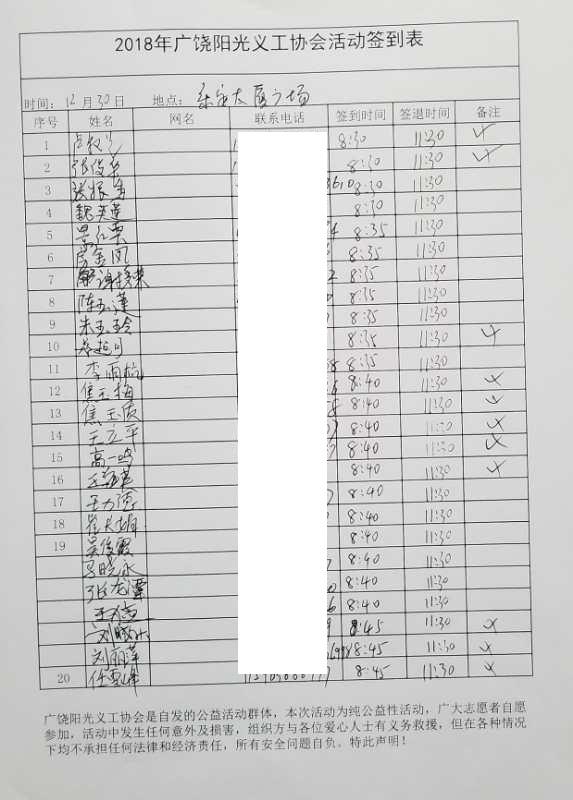 2018年广饶阳光义工协会活动签到表
时间: 12月30日 地点: 乐安大厦广场
序号 姓名 网名 联系电话 签到时间 签退时间 备注
1 8:30 11:30 ✓
2 张俊华 8:30 11:30 ✓
3 张振 8:30 11:30
4 魏英莲 8:30 11:30
5 8:35 11:30
6 房金凤 8:35 11:30
7 谢接来 8:35 11:30
8 陈玉莲 8:35 11:30
9 朱玉玲 8:35 11:30
10 8:35 11:30
11 李雨杭 8:35 11:30
12 焦玉梅 8:40 11:30
13 焦玉质 8:40 11:30
14 王立平 8:40 11:30
15 高一鸣 8:40 11:30
16 8:40 11:30
17 王力 8:40 11:30
18 崔 8:40 11:30
19 吴俊霞 8:40 11:30
马晓永 8:40 11:30
张龙潭 8:40 11:30
王 8:40 11:30
刘 8:45 11:30
刘丽萍 8:45 11:30
20 任 8:45 11:30
广饶阳光义工协会是自发的公益活动群体，本次活动为纯公益性活动，广大志愿者自愿
参加，活动中发生任何意外及损害，组织方与各位爱心人士有义务救援，但在各种情况
下均不承担任何法律和经济责任，所有安全问题自负。特此声明！